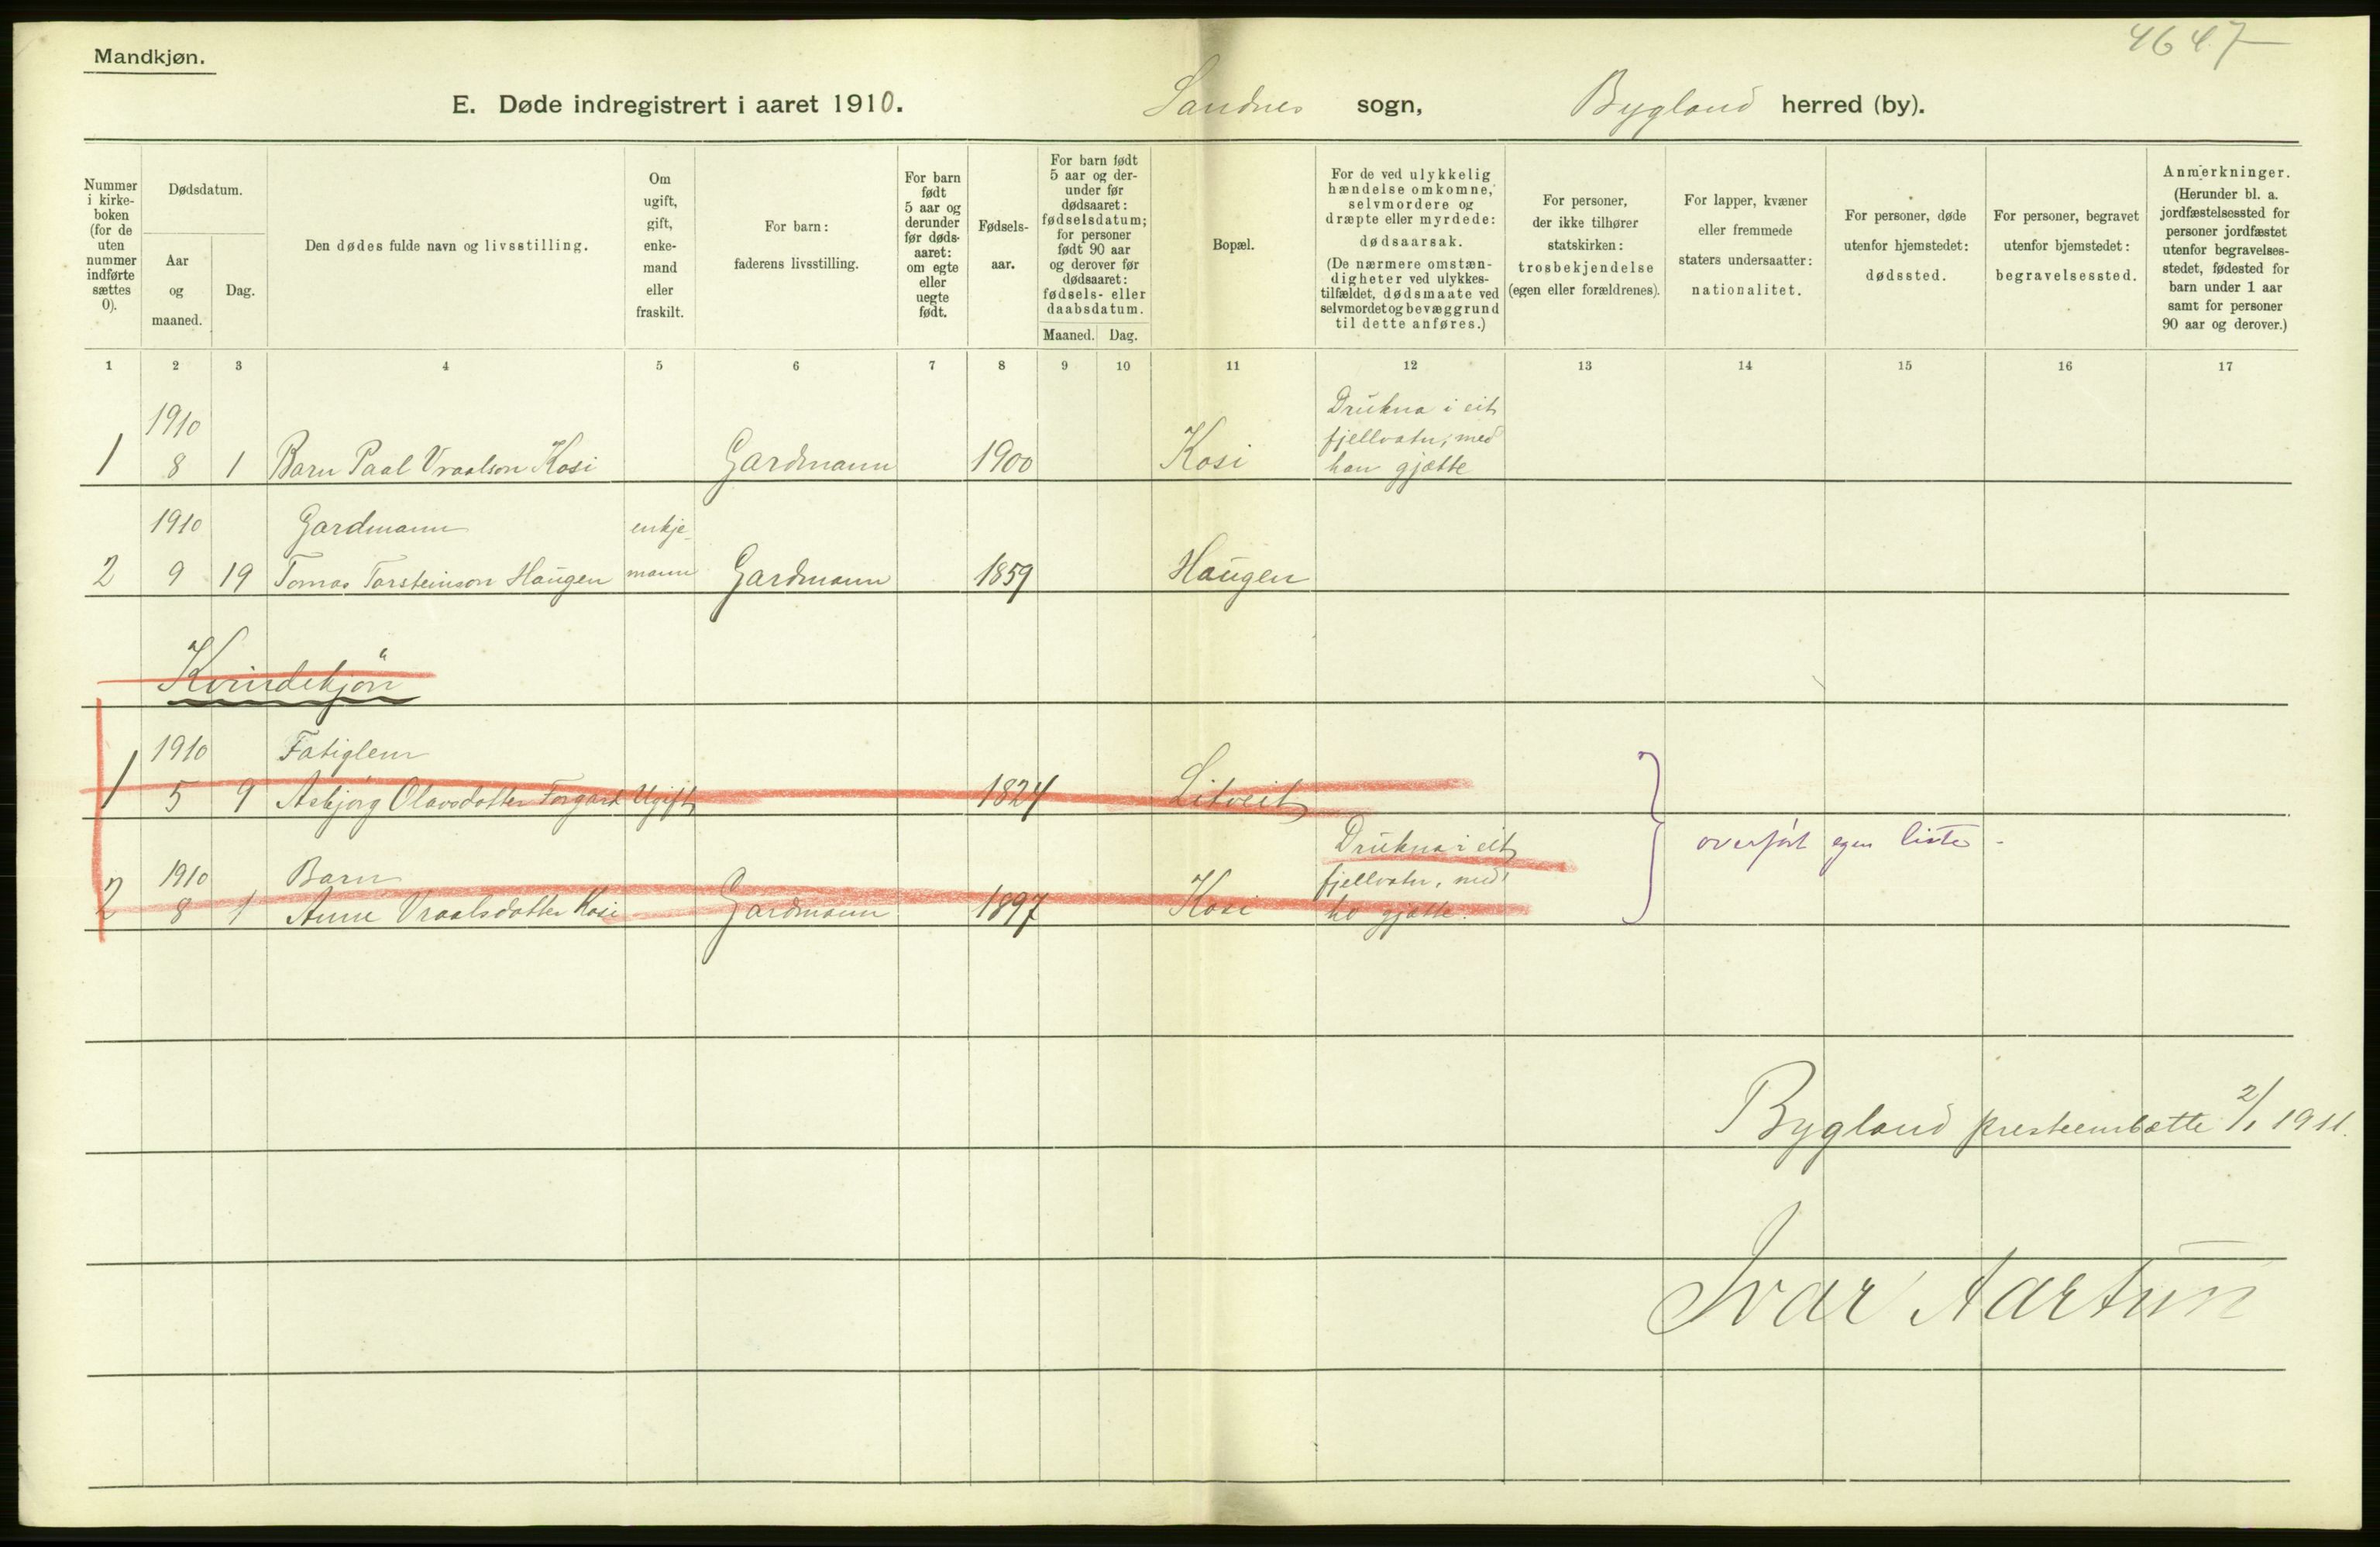 4647
Mandkjøn.
E. Døde indregistrert i aaret 1910. Sandnes sogn, Bygland herred (by).
Nummer i kirke-boken (for de uten nummer indførte sættes 0).
Dødsdatum.
Aar og maaned.
Dag.
Den dødes fulde navn og livsstilling.
Om ugift, gift, enke-mand eller fraskilt.
For barn: faderens livsstilling.
For barn født 5 aar og derunder før døds-aaret: om egte eller uegte født.
Fødsels-aar.
For barn født 5 aar og der-under før dødsaaret: fødselsdatum; for personer født 90 aar og derover før dødsaaret: fødsels- eller daabsdatum.
Maaned. Dag.
Bopæl.
For de ved ulykkelig hændelse omkomne, selvmordere og dræpte eller myrdede: dødsaarsak. (De nærmere omstæn-digheter ved ulykkes-tilfældet, dødsmaate ved selvmordet og bevæggrund til dette anføres.)
For personer, der ikke tilhører statskirken: trosbekjendelse (egen eller forældrenes).
For lapper, kvæner eller fremmede staters undersaatter: nationalitet.
For personer, døde utenfor hjemstedet: dødssted.
For personer, begravet utenfor bjemstedet: begravelsessted.
Anmerkninger. (Herunder bl. a. jordfæstelsessted for personer jordfæstet utenfor begravelses-stedet, fødested for barn under 1 aar samt for personer 90 aar og derover.)
1 2 3 4 5 6 7 8 9 10 11 12 13 14 15 16 17
1910 Drukna i eit
fjellvatn, med
1 8 1 Barn Paal Vraalson Kosi Gardmann 1900 Kosi han gjætte
1910 Gardmann enkje-
2 9 19 Tomas Torsteinson Haugen mann Gardmann 1859 Haugen
Kvindekjön
1910 Fatiglem
1 5 9 Asbjørg Olavsdotter Forgard Ugift 1824 Litveit
Drukna i eit
1910 Barn fjellvatn, med
2 8 1 Anne Vraalsdotter Kosi Gardmann 1897 Kosi ho gjætte.
overført egen liste -
Bygland presteembætte 2/1 1911.
Ivar Aartun